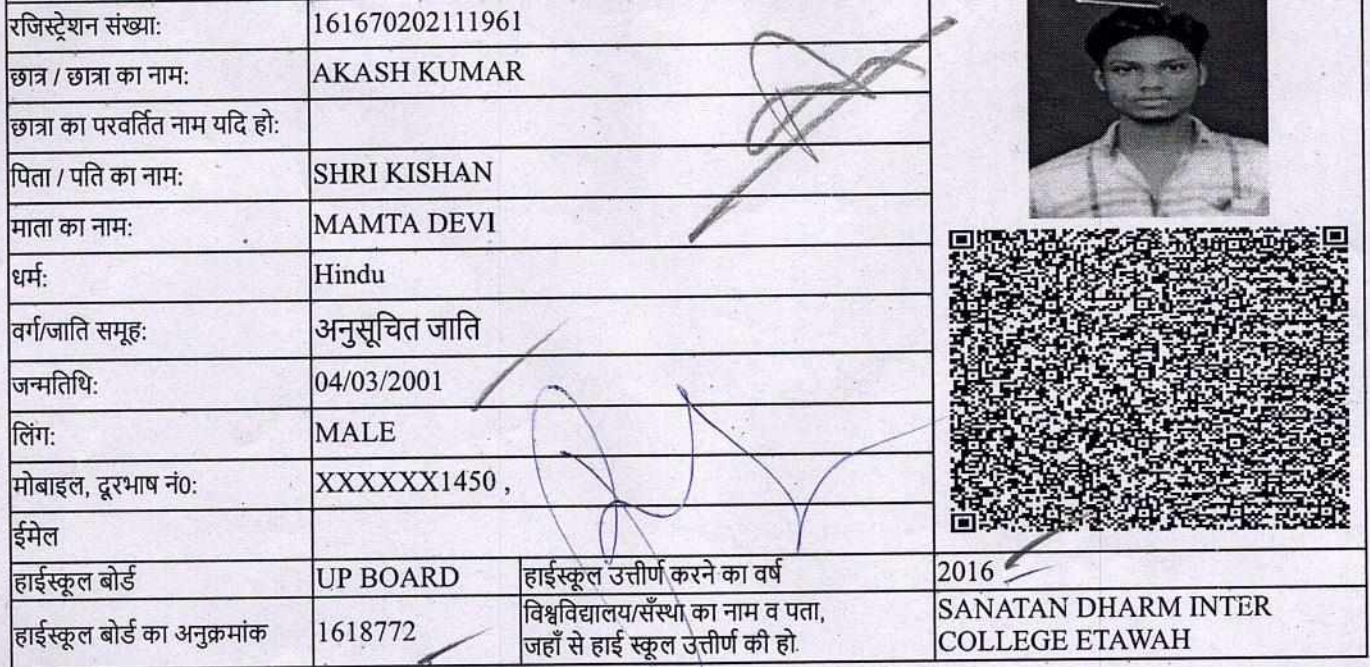 रजिस्ट्रेशन संख्या: 161670202111961
छात्र / छात्रा का नाम: AKASH KUMAR
छात्रा का परवर्तित नाम यदि हो:
पिता / पति का नाम: SHRI KISHAN
माता का नाम: MAMTA DEVI
धर्म: Hindu
वर्ग/जाति समूह: अनुसूचित जाति
जन्मतिथि: 04/03/2001
लिंग: MALE
मोबाइल, दूरभाष नं0: XXXXXX1450 ,
ईमेल
हाईस्कूल बोर्ड UP BOARD हाईस्कूल उत्तीर्ण करने का वर्ष 2016
हाईस्कूल बोर्ड का अनुक्रमांक 1618772 विश्वविद्यालय/सँस्था का नाम व पता,
जहाँ से हाई स्कूल उत्तीर्ण की हो.
SANATAN DHARM INTER
COLLEGE ETAWAH